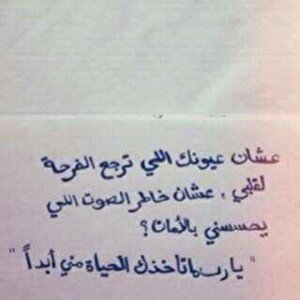 عشان عيونك اللي ترجع الفرحة
لقلبي ، عشان خاطر الصوت اللي
يحسسني بالأمان ؟
" يارب ماتاخذك الحياة مني أبداً "